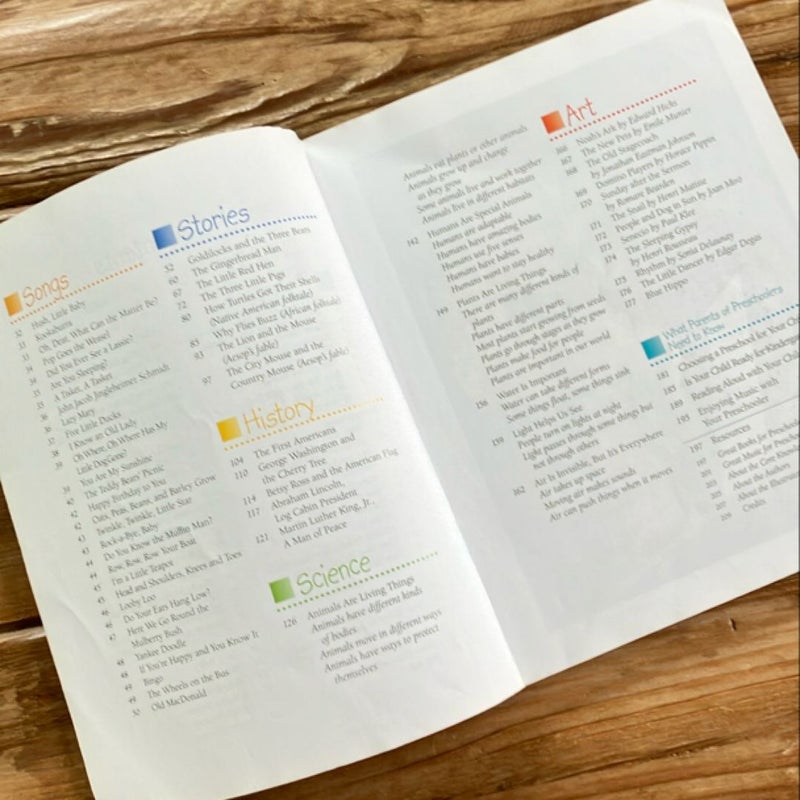 Songs
Hush, Little Baby
Kookaburra
Oh, Dear, What Can the Matter Be?
Pop Goes the Weasel
Did You Ever See a Lassie?
Are You Sleeping?
A Tisket, A Tasket
John Jacob Jingleheimer Schmidt
Lazy Mary
Five Little Ducks
I Know an Old Lady
Oh Where, Oh Where Has My
Little Dog Gone?
You Are My Sunshine
The Teddy Bears' Picnic
Happy Birthday to You
Oats, Peas, Beans, and Barley Grow
Twinkle, Twinkle, Little Star
Rock-a-Bye, Baby
Do You Know the Muffin Man?
Row, Row, Row Your Boat
I'm a Little Teapot
Head and Shoulders, Knees and Toes
Looby Loo
Do Your Ears Hang Low?
Here We Go Round the
Mulberry Bush
48 Yankee Doodle
48 If You're Happy and You Know It
49 Bingo
49 The Wheels on the Bus
50 Old MacDonald
Stories
52 Goldilocks and the Three Bears
60 The Gingerbread Man
The Little Red Hen
72 The Three Little Pigs
80 How Turtles Got Their Shells
(Native American folktale)
85 Why Flies Buzz (African folktale)
93 The Lion and the Mouse
(Aesop's fable)
97 The City Mouse and the
Country Mouse (Aesop's fable)
History
104 The First Americans
110 George Washington and
the Cherry Tree
114 Betsy Ross and the American Flag
117 Abraham Lincoln,
Log Cabin President
121 Martin Luther King, Jr.,
A Man of Peace
Science
126 Animals Are Living Things
Animals have different kinds
of bodies
Animals move in different ways
Animals have ways to protect
themselves
Animals eat plants or other animals
Animals grow up and change
as they grow
Some animals live and work together
Animals live in different habitats
142 Humans Are Special Animals
Humans are adaptable
Humans have amazing bodies
Humans use five senses
Humans have babies
Humans want to stay healthy
149 Plants Are Living Things
There are many different kinds of
plants
Plants have different parts
Most plants start growing from seeds
Plants go through stages as they grow
Plants make food for people
Plants are important in our world
156 Water Is Important
Water can take different forms
Some things float, some things sink
159 Light Helps Us See
People turn on lights at night
Light passes through some things but
not through others
162 Air Is Invisible, But It's Everywhere
Air takes up space
Moving air makes sounds
Air can push things when it moves
Art
166 Noah's Ark by Edward Hicks
167 The New Pets by Emile Munier
168 The Old Stagecoach
by Jonathan Eastman Johnson
169 Domino Players by Horace Pippin
170 Sunday after the Sermon
by Romare Bearden
171 The Snail by Henri Matisse
172 People and Dog in Sun by Joan Miró
173 Senecio by Paul Klee
174 The Sleeping Gypsy
by Henri Rousseau
175 Rhythm by Sonia Delaunay
176 The Little Dancer by Edgar Degas
177 Blue Hippo
What Parents of Preschoolers
Need to Know
181 Choosing a Preschool for Your
185 Is Your Child Ready for
189 Reading Aloud with Your
195 Enjoying Music with
Your Preschooler
197 Resources
Great Books for
Great Music for
About the Core
About the Authors
About the
209 Credits